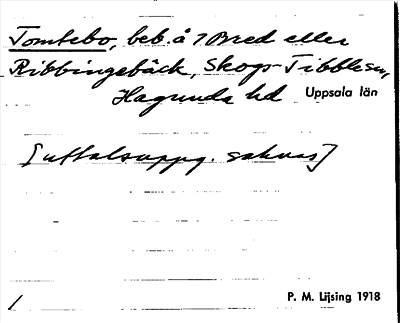 Tomtebo, beb. å 7 Bred eller
Ribbingebäck, Skogs-Tibble sn,
Hagunda hd Uppsala län
[uttalsuppg. saknas]
P. M. Lijsing 1918
/